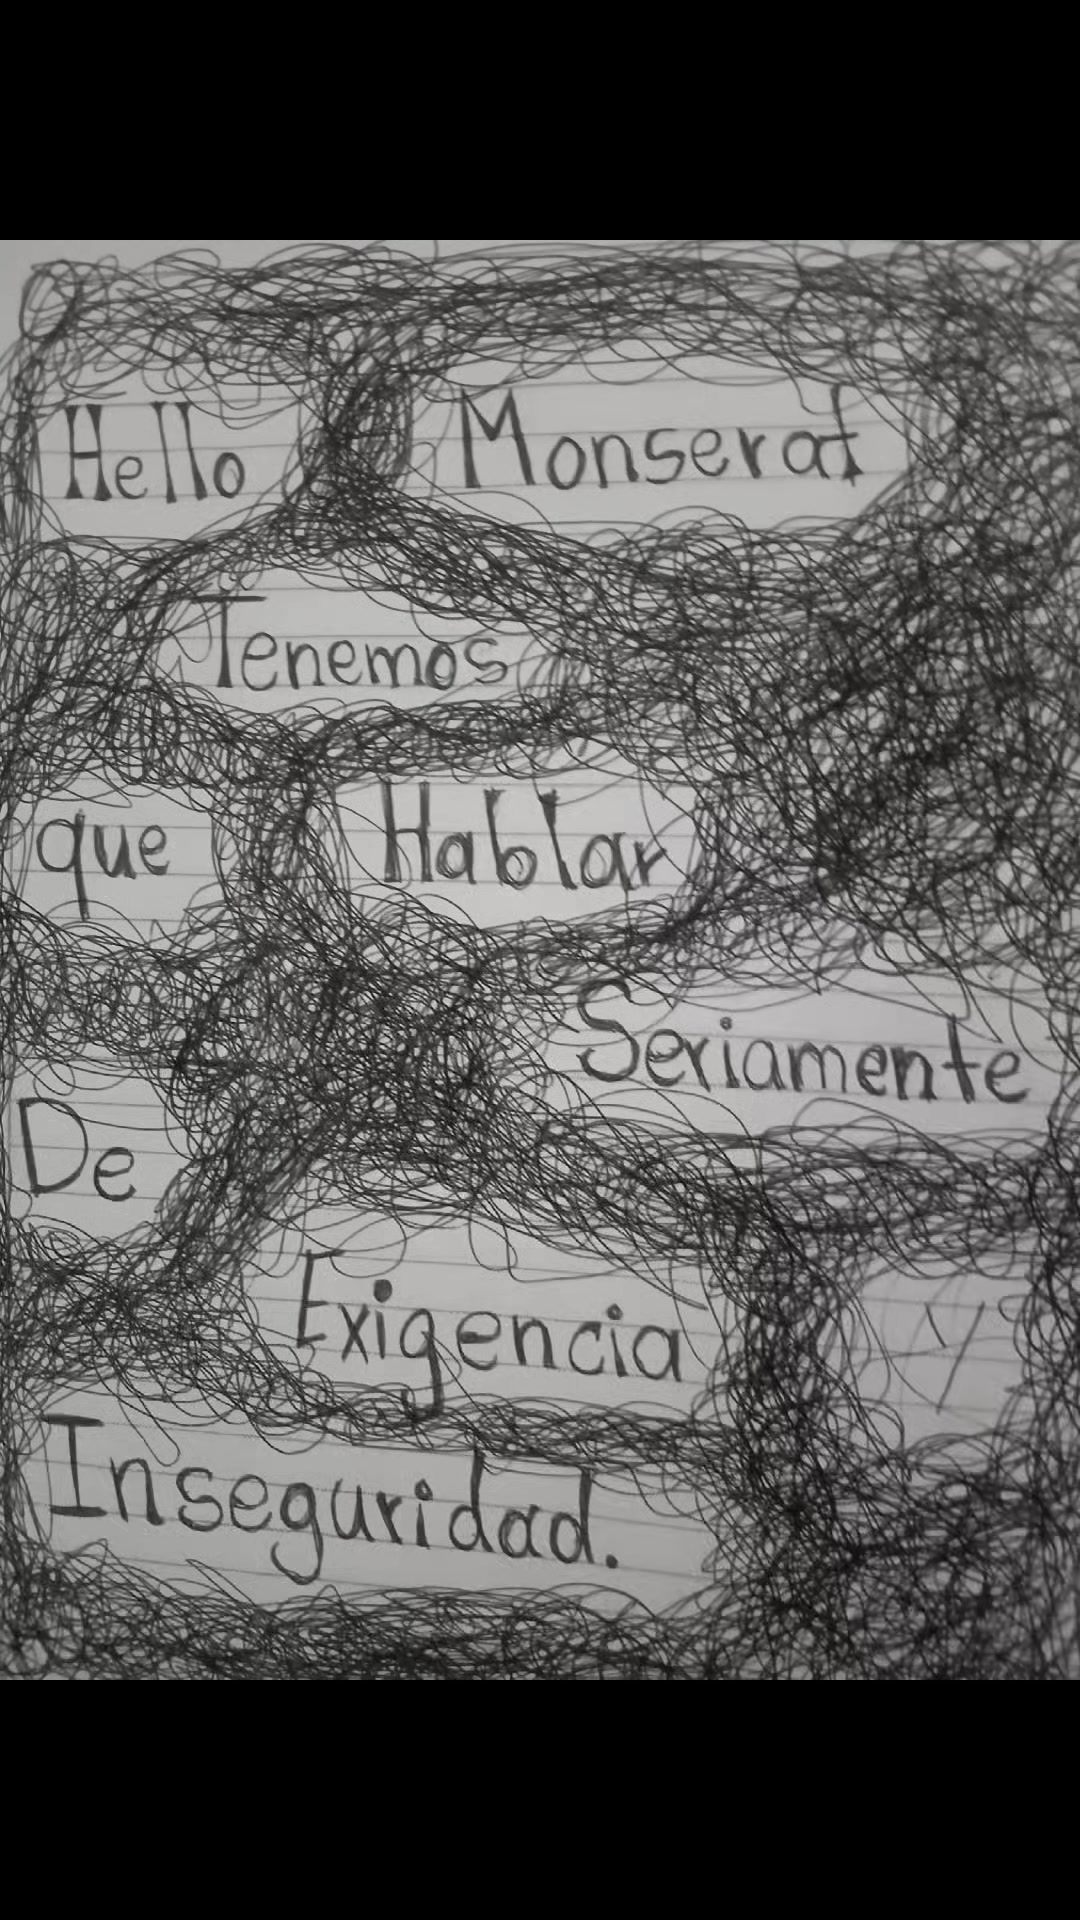 Hello Monserat
Tenemos
que Hablar
Seriamente
De
Exigencia y
Inseguridad.